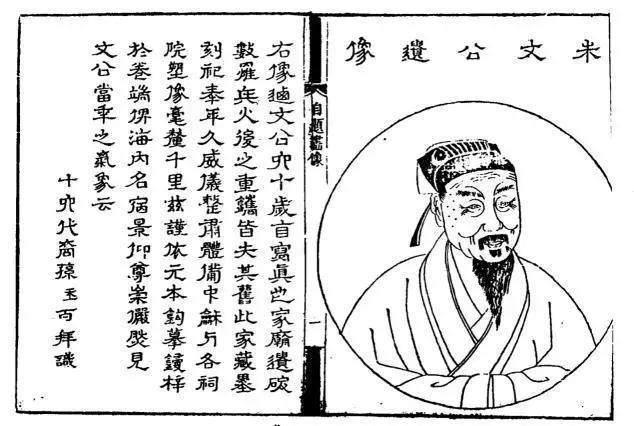 朱文公遺像
自題畫像
一
右像迺文公六十歲自寫眞也家廟遺碑
數罹兵火後之重鐫皆失其舊此家藏墨
刻祀奉年久威儀整肅體備中龢与各祠
院塑像毫釐千里兹謹依元本鈎摹鋟梓
於卷端俾海內名宿景仰尊崇儼然見
文公當年之氣象云
十六代裔孫玉百拜識